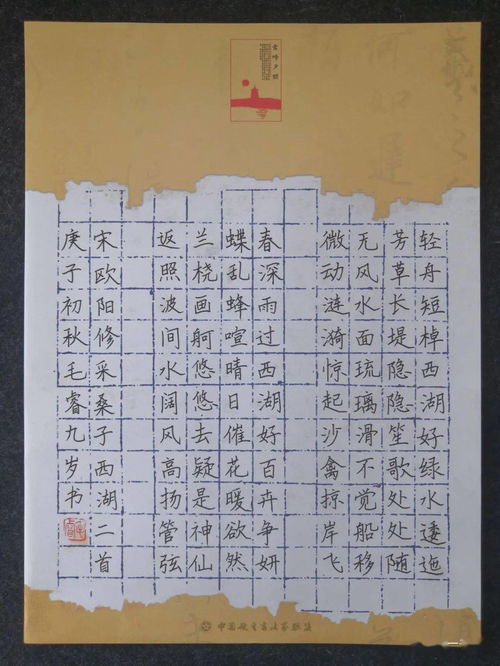 雷峰夕照
轻舟短棹西湖好绿水逶迤
芳草长堤隐隐笙歌处处随
无风水面琉璃滑不觉船移
微动涟漪惊起沙禽掠岸飞
春深雨过西湖好百卉争妍
蝶乱蜂喧晴日催花暖欲然
兰桡画舸悠悠去疑是神仙
返照波间水阔风高扬管弦
宋欧阳修采桑子西湖二首
庚子初秋毛睿九岁书
中国硬笔书法家协会